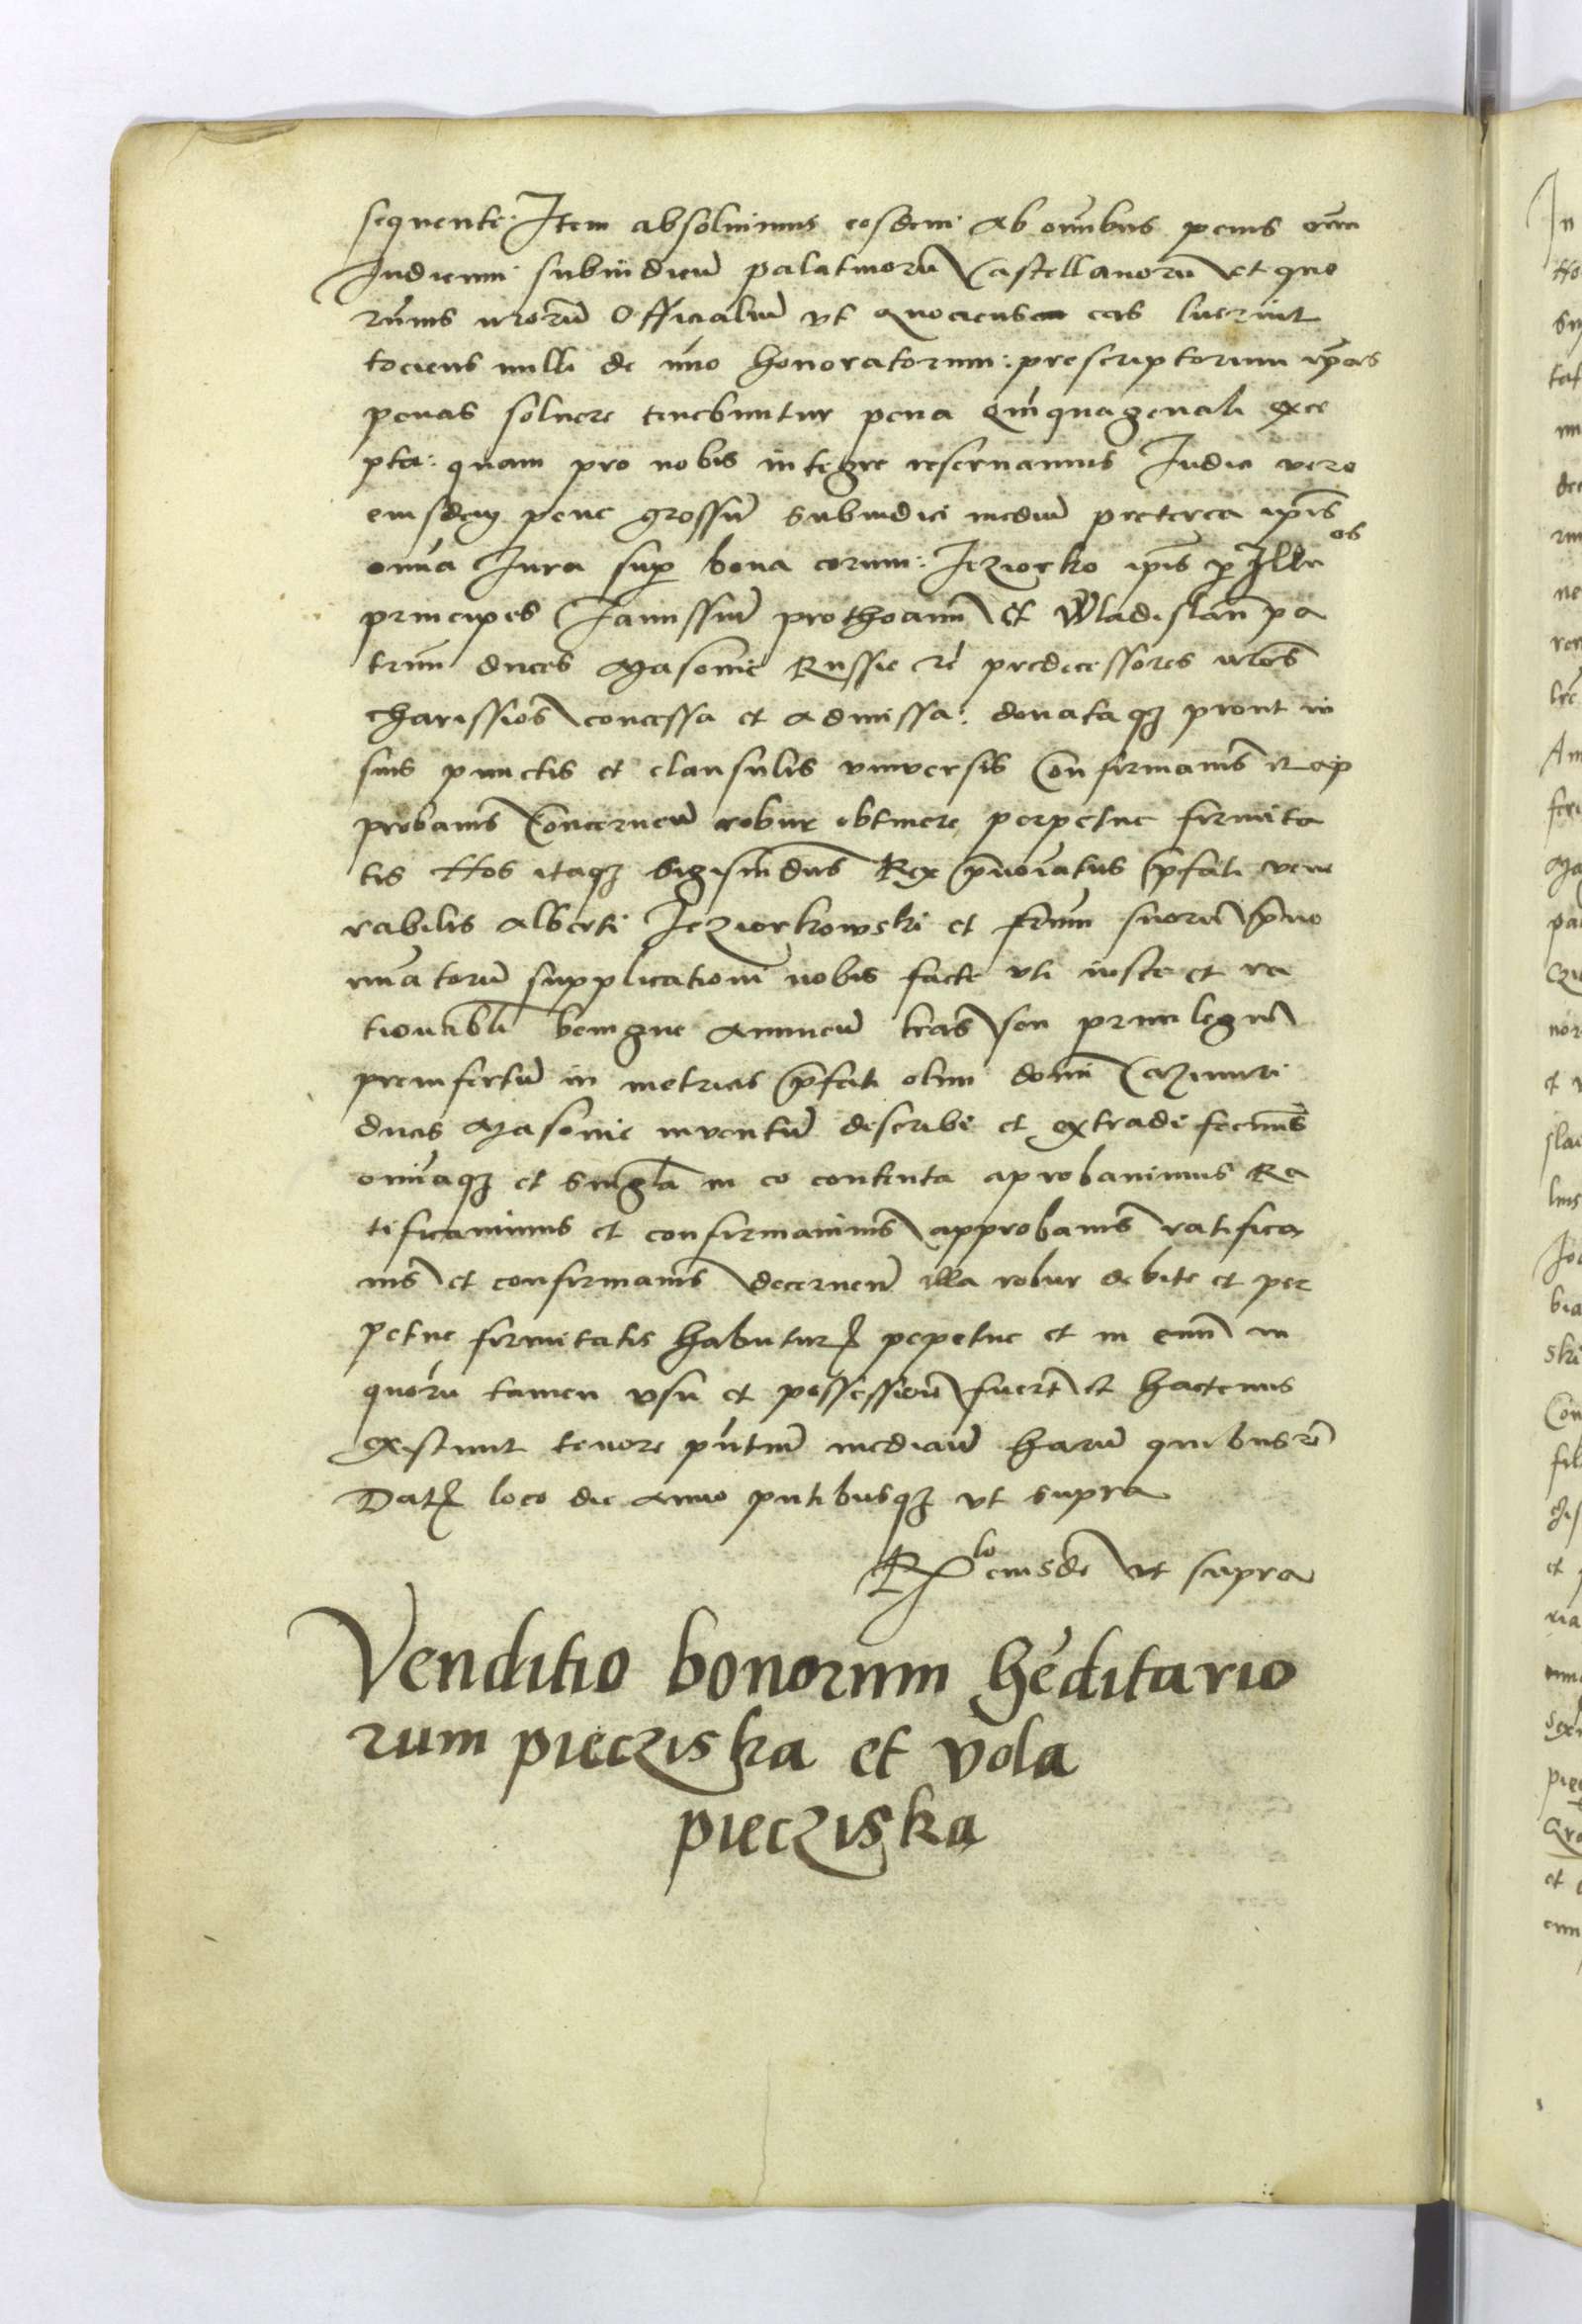 sequente. Item absolvimus eosdem ab omībus penis cum
Iudicum subiudicū palatinorū Castellanorū et quo
rūvis nrorū Officialiū ut quociens eas luerint
tociens nulli de uno honoratorum: prescriptorum ipas
penas solvere tenebuntur pena quīquagenali exce
pta: quam pro nobis integre reservamus Iudici vero
eiusdem pene grossū subiudici mediū preterea ipīs
omīa Iura sup bona eorum: Jeziorko ipīs p Illres
principes Janussiū prothoanū et Wladislaū pa
truū duces Masovie Russie rc predecessores nrōs
charissiōs concessa et admissa: donataqz prout in
suis punctis et clausulis universis Confirmams et ap
probams Concerneū robur obtinere perpetue firmita
tis Nos itaqz Sigismūdus Rex p̄noiatus p̄fati vene
rabilis Alberti Jeziorkowski et frūm suorū p̄no
mīatorū supplicationi nobis facte uti iuste et ra
tionabli benigne annueū lrās seu privilegiū
preinsertū in metricis p̄fati olim domī Cazimiri
ducis Masovie inventū describi et extradi fecimūs
omīaqz et singla in eo contenta aprobavimus Ra
tificavimus et confirmavimūs approbams ratifica
ms et confirmams decerneū illa robur debite et per
petue firmitatis habitur pepetue et in evū in
quorū tamen usu et possessioē fuert et hactenus
existunt tenore pn̄tiū mediaū harū quibus rē
Dat loco die anno pntibusqz ut supra
Rlo eiusdē ut supra
Venditio bonorum hēditario
rum piecziska et vola
piecziska